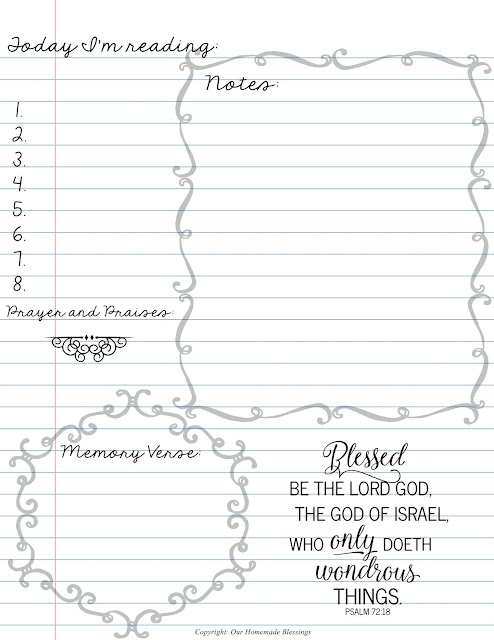 Today I'm reading:
Notes:
1.
2.
3.
4.
5.
6.
7.
8.
Prayer and Praises:
Memory Verse:
Blessed
BE THE LORD GOD,
THE GOD OF ISRAEL,
WHO only DOETH
wondrous
THINGS.
PSALM 72:18
Copyright: Our Homemade Blessings